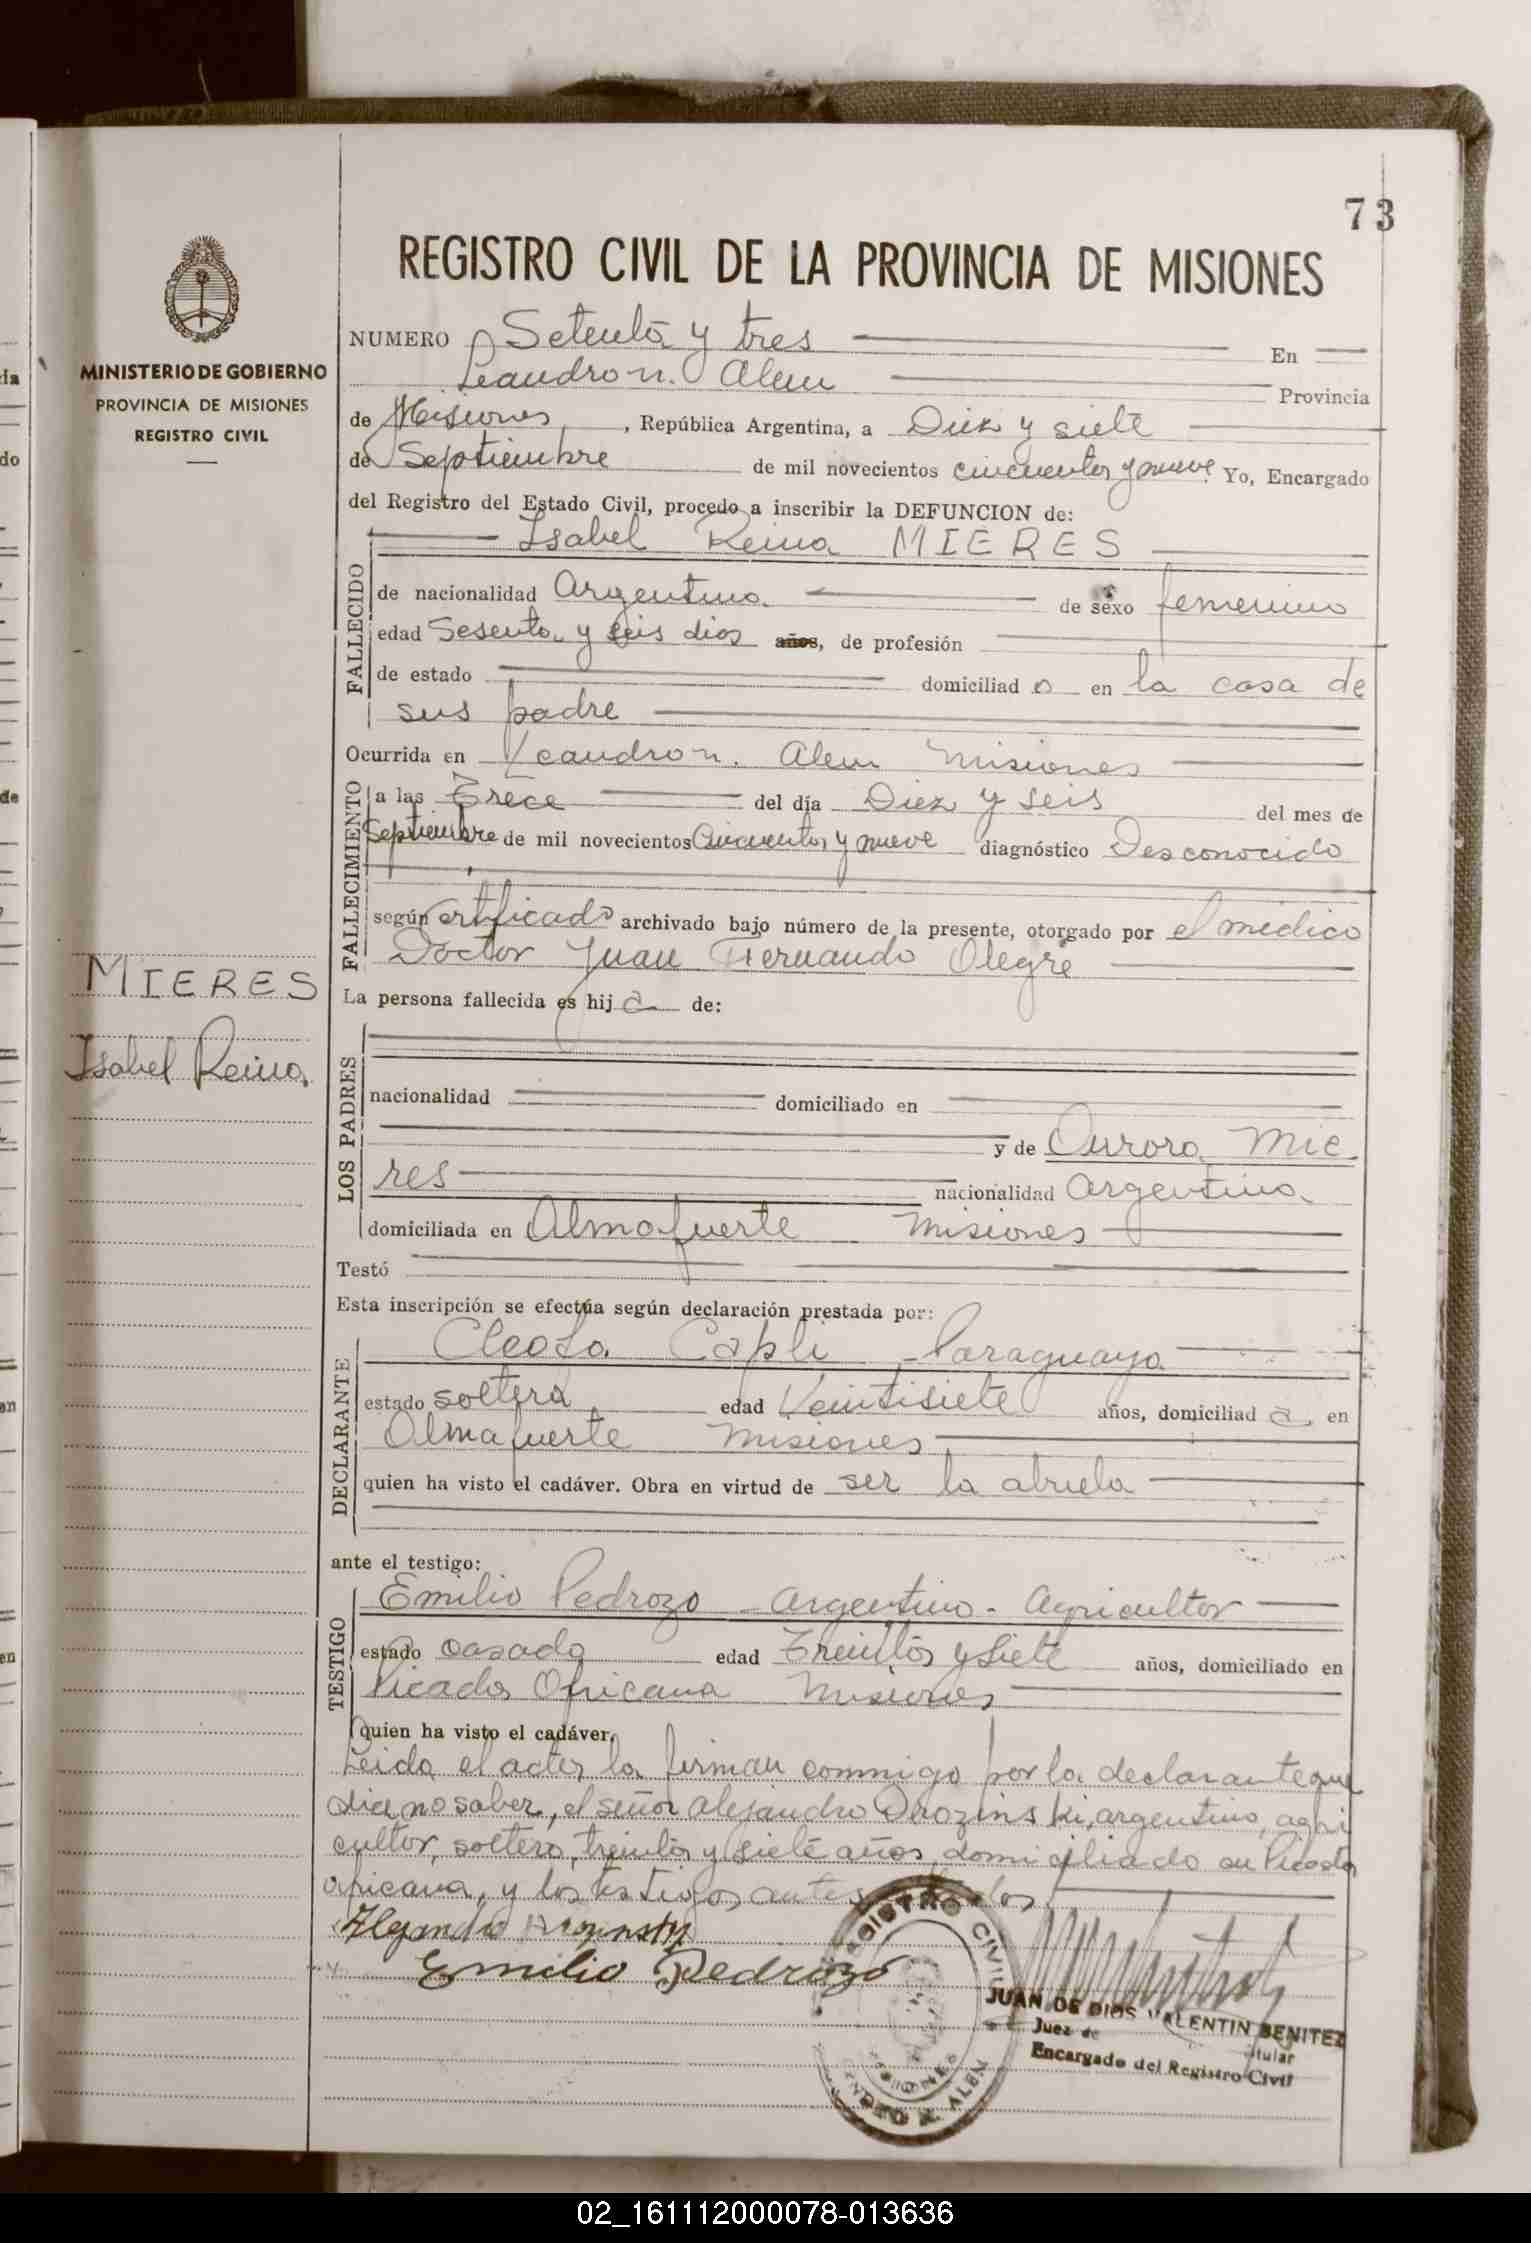 73
REGISTRO CIVIL DE LA PROVINCIA DE MISIONES
MINISTERIO DE GOBIERNO
PROVINCIA DE MISIONES
REGISTRO CIVIL
NUMERO Setenta y tres En
Leandro n. Alem Provincia
de Misiones, República Argentina, a Diez y siete
de Septiembre de mil novecientos cincuenta y nueve Yo, Encargado
del Registro del Estado Civil, procedo a inscribir la DEFUNCION de:
Isabel Reina MIERES
FALLECIDO
de nacionalidad Argentina de sexo femenino
edad Sesenta y seis dias años, de profesión
de estado domiciliad o en la casa de
sus padre
Ocurrida en Leandro n. Alem Misiones
FALLECIMIENTO
a las Trece del día Diez y seis del mes de
Septiembre de mil novecientos Cincuenta y nueve diagnóstico Desconocido
según certificado archivado bajo número de la presente, otorgado por el médico
Doctor Juan Fernando Alegre
MIERES
Isabel Reina
La persona fallecida es hij a de:
LOS PADRES
nacionalidad domiciliado en
y de Aurora Mie
res nacionalidad Argentina
domiciliada en Almafuerte Misiones
Testó
Esta inscripción se efectúa según declaración prestada por:
DECLARANTE
Paraguaya
estado soltera edad Veintisiete años, domiciliad a en
Almafuerte Misiones
quien ha visto el cadáver. Obra en virtud de ser la abuela
ante el testigo:
TESTIGO
Emilio Pedrozo - argentino - Agricultor
estado casado edad Treinta y siete años, domiciliado en
Picada Africana Misiones
quien ha visto el cadáver,
Leida el acta, la firman conmigo por la declarante que
dice no saber, el señor Alejandro argentino, agri
cultor, soltero, treinta y siete años, domiciliado en Picada
africana, y los testigos antes
Alejandro
Emilio Pedrozo
REGISTRO CIVIL
MISIONES
LEANDRO N. ALEM
JUAN DE DIOS VALENTIN BENITEZ
Juez de titular
Encargado del Registro Civil
02_161112000078-013636